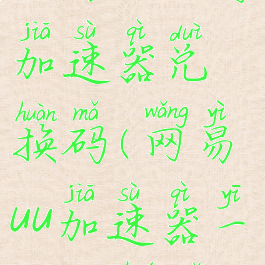 jiā sù qì duì
加速器兑
huàn mǎ wǎng yì
换码(网易
jiā sù qì yī
uu加速器一